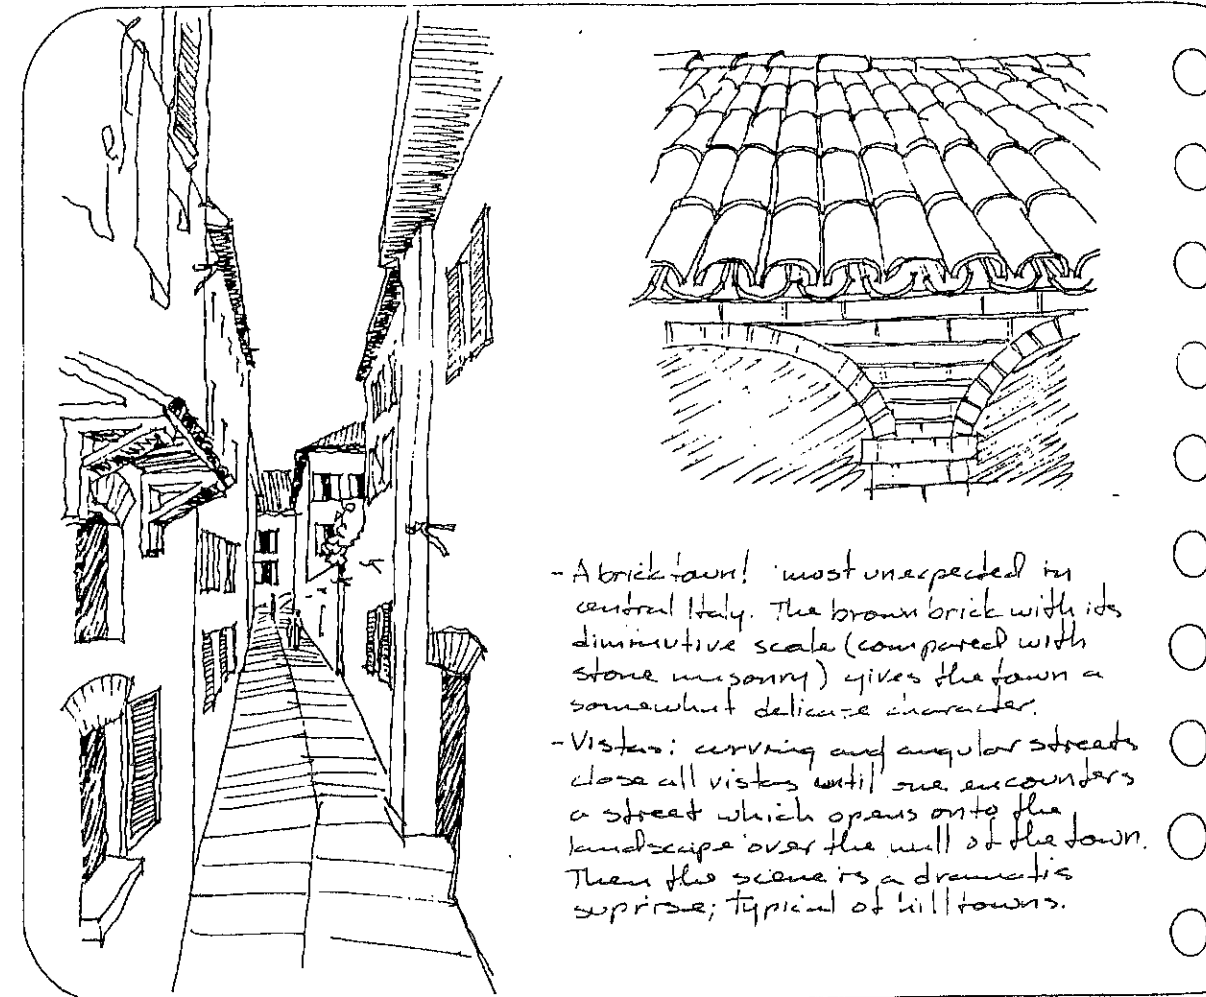 - A brick town! most unexpected in
central Italy. The brown brick with its
diminutive scale (compared with
stone masonry) gives the town a
somewhat delicate character.
- Vistas: curving and angular streets
close all vistas until one encounters
a street which opens onto the
landscape over the wall of the town.
Then the scene is a dramatic
suprise; typical of hill towns.